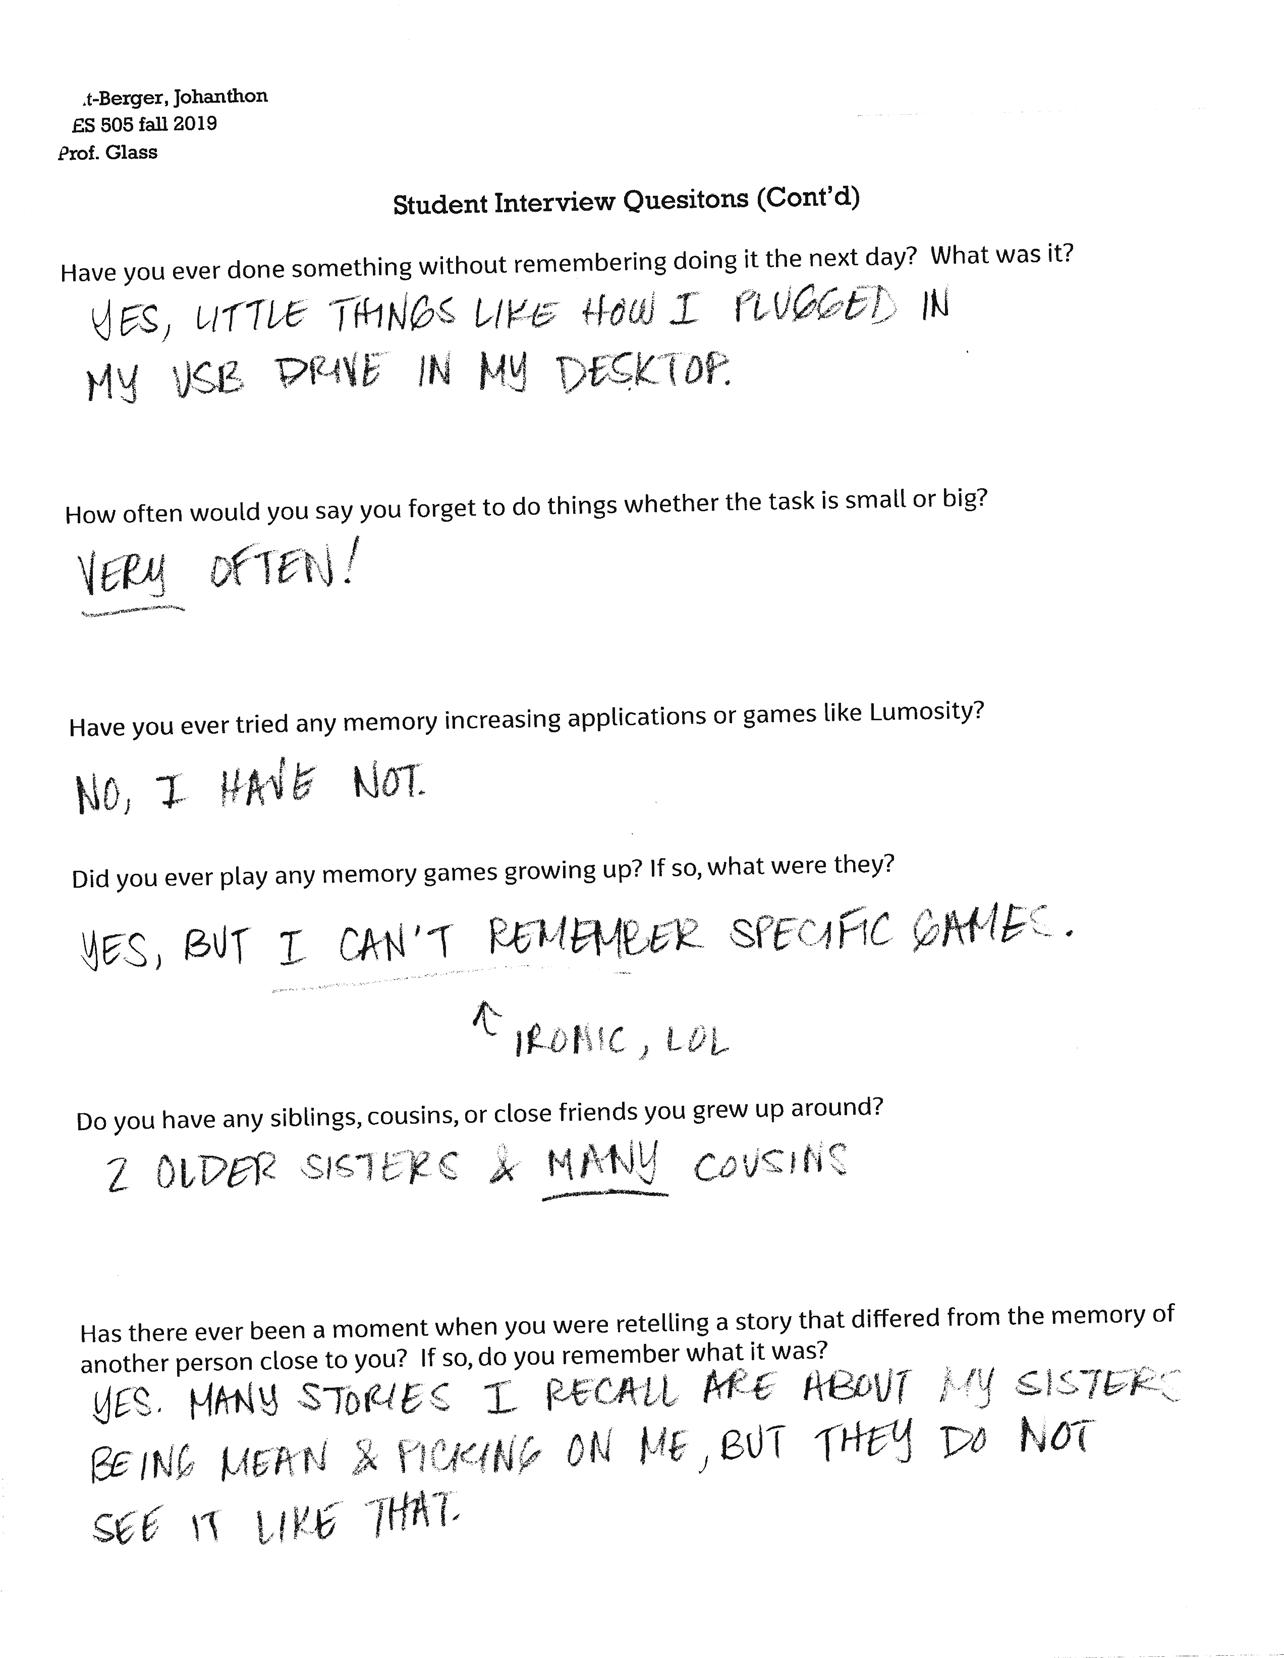 .t-Berger, Johanthon
ES 505 fall 2019
Prof. Glass
Student Interview Quesitons (Cont'd)
Have you ever done something without remembering doing it the next day? What was it?
YES, LITTLE THINGS LIKE HOW I PLUGGED IN
MY USB DRIVE IN MY DESKTOP.
How often would you say you forget to do things whether the task is small or big?
VERY OFTEN!
Have you ever tried any memory increasing applications or games like Lumosity?
NO, I HAVE NOT.
Did you ever play any memory games growing up? If so, what were they?
YES, BUT I CAN'T REMEMBER SPECIFIC GAMES.
↑ IRONIC, LOL
Do you have any siblings, cousins, or close friends you grew up around?
2 OLDER SISTERS & MANY COUSINS
Has there ever been a moment when you were retelling a story that differed from the memory of
another person close to you? If so, do you remember what it was?
YES. MANY STORIES I RECALL ARE ABOUT MY SISTERS
BEING MEAN & PICKING ON ME, BUT THEY DO NOT
SEE IT LIKE THAT.